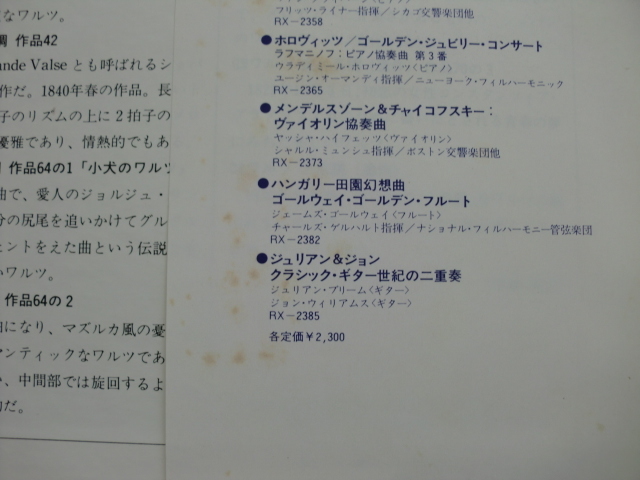 なワルツ。
調 作品42
ande Valse とも呼ばれるシ
作だ。1840年春の作品。長
子のリズムの上に2拍子の
優雅であり、情熱的でもあ
作品64の1「小犬のワルツ
曲で、愛人のジョルジュ・
分の尻尾を追いかけてグル
ェントをえた曲という伝説
いワルツ。
作品64の2
曲になり、マズルカ風の憂
アンティックなワルツであ
、中間部では旋回するよ
的だ。
フリッツ・ライナー指揮/シカゴ交響楽団他
RX-2358
●ホロヴィッツ/ゴールデン・ジュビリー・コンサート
ラフマニノフ:ピアノ協奏曲 第3番
ウラディミール・ホロヴィッツ〈ピアノ〉
ユージン・オーマンディ指揮/ニューヨーク・フィルハーモニック
RX-2365
●メンデルスゾーン&チャイコフスキー:
ヴァイオリン協奏曲
ヤッシャ・ハイフェッツ〈ヴァイオリン〉
シャルル・ミュンシュ指揮/ボストン交響楽団他
RX-2373
●ハンガリー田園幻想曲
ゴールウェイ・ゴールデン・フルート
ジェームズ・ゴールウェイ〈フルート〉
チャールズ・ゲルハルト指揮/ナショナル・フィルハーモニー管弦楽団
RX-2382
●ジュリアン&ジョン
クラシック・ギター世紀の二重奏
ジュリアン・ブリーム〈ギター〉
ジョン・ウィリアムス〈ギター〉
RX-2385
各定価¥2,300